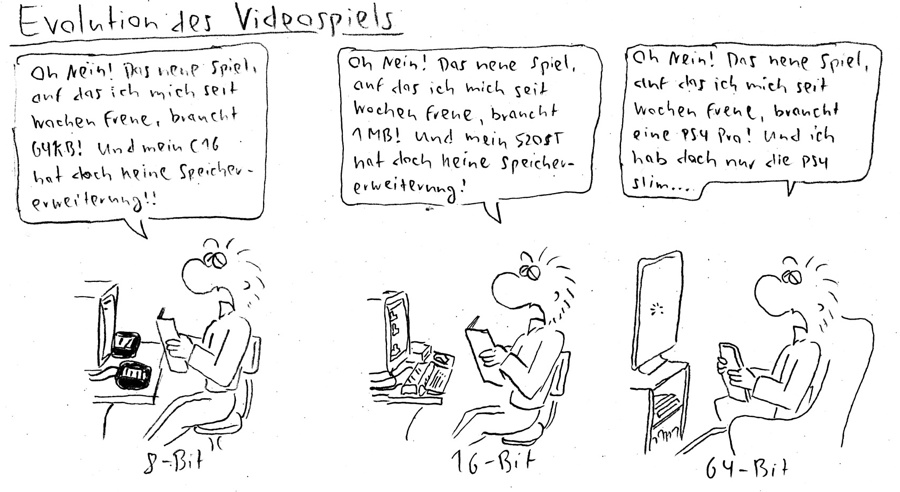 Evolution des Videospiels
Oh Nein! Das neue Spiel,
auf das ich mich seit
Wochen freue, braucht
64KB! Und mein C16
hat doch keine Speicher-
erweiterung!!
Oh Nein! Das neue Spiel,
auf das ich mich seit
Wochen freue, braucht
1MB! Und mein 520ST
hat doch keine Speicher-
erweiterung!
Oh Nein! Das neue Spiel,
auf das ich mich seit
Wochen freue, braucht
eine PS4 Pro! Und ich
hab doch nur die PS4
slim...
8-Bit
16-Bit
64-Bit